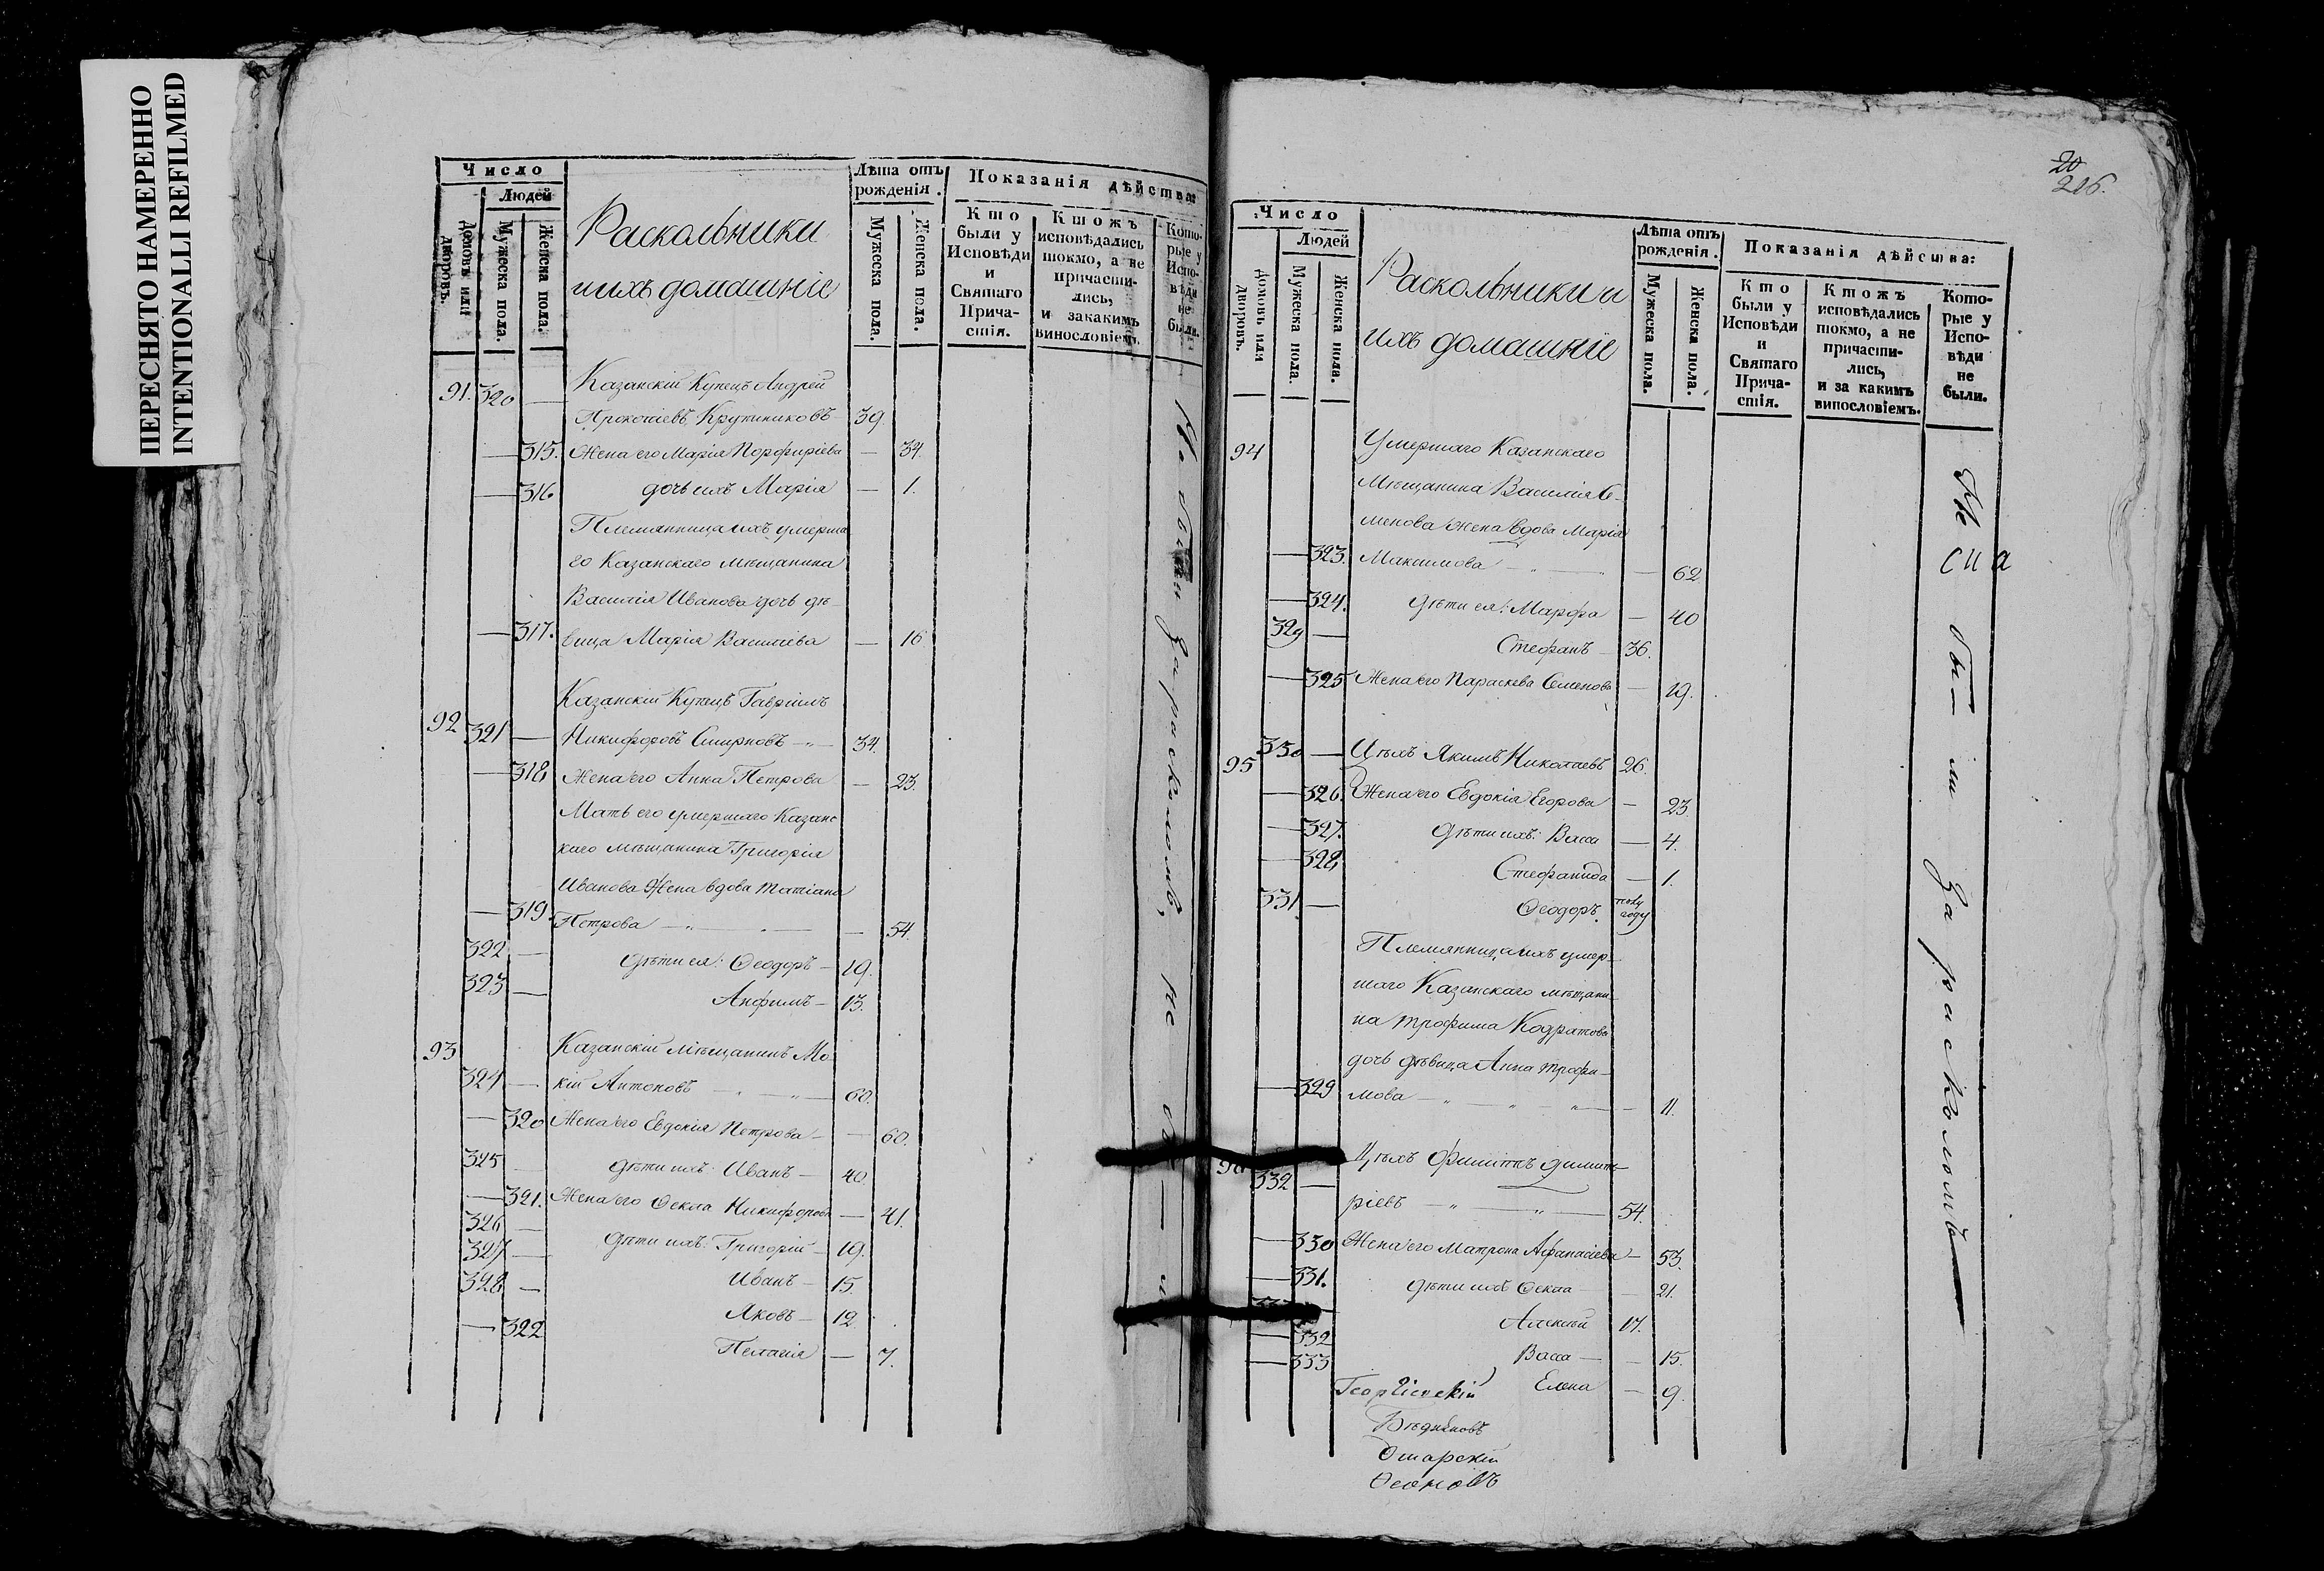 ПЕРЕСНЯТО НАМЕРЕННО
INTENTIONALLI REFILMED
Число
Людей
домовъ или дворовъ.
Мужеска пола.
Женска пола.
Раскольники
и ихъ домашніе
Лѣта отъ рожденія.
Мужеска пола.
Женска пола.
Показанія дѣйства:
Кто были у Исповѣди и Святаго Прича-стія.
Ктожъ исповѣдались токмо, а не причасти-лись, и закакимъ винословіемъ.
Кото-рые у Испо-вѣди не были.
91. 320 — Казанскій Купецъ Андрей
Прокопіевъ Крупниковъ 39
— 315. Жена его Марія Порфиріева — 34.
— 316 дочь ихъ Марія — 1.
Племянница ихъ умерша
го Казанскаго мѣщанина
Василія Иванова дочь дѣ-
— 317. вица Марія Васильева — 16
Казанскій Купецъ Гавріилъ
92 321 — Никифоровъ Смирновъ 34.
— 318 Жена его Анна Петрова — 23.
Мать его умершаго Казанс
каго мѣщанина Григорія
Иванова Жена вдова Татіана
— 319. Петрова — 54.
322 — дѣти ея: Ѳеодоръ — 19.
323 — Анфимъ — 13.
93 Казанскій мѣщанинъ Мо
324 — кій Антоновъ — 60.
— 320 Жена его Евдокія Петрова — 60.
325 — дѣти ихъ: Иванъ — 40.
— 321. Жена его Ѳекла Никифорова — 41.
326 — дѣти ихъ: Григорій — 19.
327 — Иванъ — 15.
328 — Яковъ — 12.
— 322 Пелагія — 7.
20
216.
Число
Людей
домовъ или дворовъ.
Мужеска пола.
Женска пола.
Раскольники и
ихъ домашніе
Лѣта отъ рожденія.
Мужеска пола.
Женска пола.
Показанія дѣйства:
Кто были у Исповѣди и Святаго Прича-стія.
Ктожъ исповѣдались токмо, а не причасти-лись, и за какимъ винословіемъ.
Кото-рые у Испо-вѣди не были.
94 Умершаго Казанскаго
Мѣщанина Василія Се-
менова жена вдова Марія
— 323. Максимова — 62
— 324. дѣти ея: Марфа — 40
329 — Стефанъ — 36.
— 325 Жена его Параскева Семенова — 19.
95 330 — Цѣхъ Якимъ Николаевъ 26.
— 326. Жена его Евдокія Егорова — 23.
— 327. дѣти ихъ: Васса — 4.
— 328 Стефанида — 1.
331 — Ѳеодоръ. полу году
Племянница ихъ умер-
шаго Казанскаго мѣщани-
на Трофима Кодратова
дочь дѣвица Анна Трофи-
— 329 мова — 11.
332 — Цѣхъ Филиппъ Димит-
ріевъ — 54.
— 330 Жена его Матрона Афанасіева — 53.
— 331. дѣти ихъ Ѳекла — 21.
Алексѣй 17.
— 332 Васса — 15.
— 333 Елена — 9.
Георгіевскій
за расколомъ